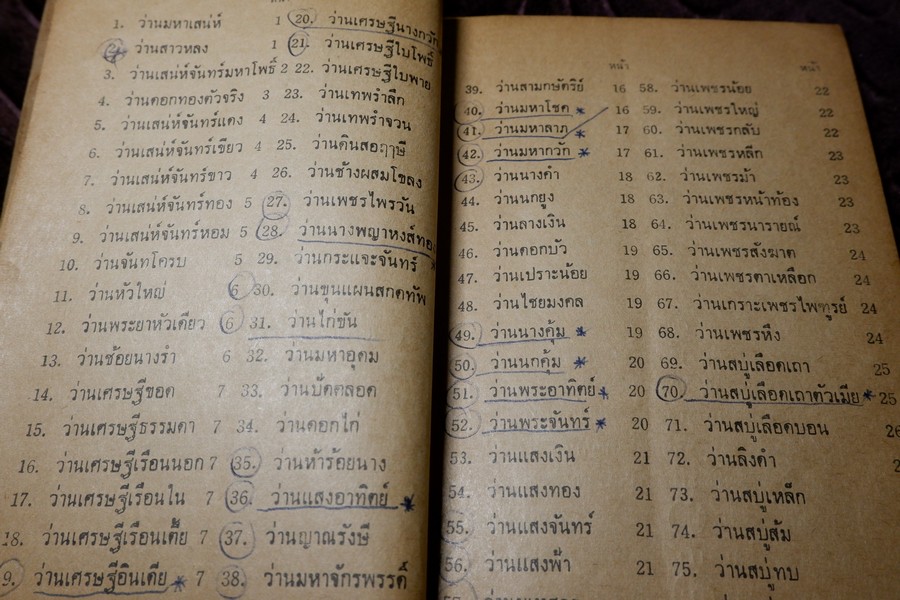 หน้า
1. ว่านมหาเสน่ห์ 1
2. ว่านสาวหลง 1
3. ว่านเสน่ห์จันทร์มหาโพธิ์ 2
4. ว่านดอกทองตัวจริง 3
5. ว่านเสน่ห์จันทร์แดง 4
6. ว่านเสน่ห์จันทร์เขียว 4
7. ว่านเสน่ห์จันทร์ขาว 4
8. ว่านเสน่ห์จันทร์ทอง 5
9. ว่านเสน่ห์จันทร์หอม 5
10. ว่านจันทโครบ 5
11. ว่านหัวใหญ่ 6
12. ว่านพระยาหัวเดียว 6
13. ว่านช้อยนางรำ 6
14. ว่านเศรษฐีขอด 7
15. ว่านเศรษฐีธรรมดา 7
16. ว่านเศรษฐีเรือนนอก 7
17. ว่านเศรษฐีเรือนใน 7
18. ว่านเศรษฐีเรือนเตี้ย 7
9. ว่านเศรษฐีอินเดีย * 7
20. ว่านเศรษฐีนางกวัก
21. ว่านเศรษฐีใบโพธิ์
22. ว่านเศรษฐีใบพาย
23. ว่านเทพรำลึก
24. ว่านเทพรำจวน
25. ว่านดินสอฤๅษี
26. ว่านช้างผสมโขลง
27. ว่านเพชรไพรวัน
28. ว่านนางพญาหงส์ทอง
29. ว่านกระแจะจันทร์
30. ว่านขุนแผนสกดทัพ
31. ว่านไก่ขัน
32. ว่านมหาอุดม
33. ว่านปัดตลอด
34. ว่านดอกไก่
35. ว่านห้าร้อยนาง
36. ว่านแสงอาทิตย์ *
37. ว่านญาณรังษี
38. ว่านมหาจักรพรรดิ์
หน้า
39. ว่านสามกษัตริย์ 16
40. ว่านมหาโชค * 16
41. ว่านมหาลาภ 17
42. ว่านมหากวัก * 17
43. ว่านนางคำ 18
44. ว่านนกยูง 18
45. ว่านลางเงิน 18
46. ว่านดอกบัว 19
47. ว่านเปราะน้อย 19
48. ว่านไชยมงคล 19
49. ว่านนางคุ้ม * 19
50. ว่านนกคุ้ม * 20
51. ว่านพระอาทิตย์ * 20
52. ว่านพระจันทร์ * 20
53. ว่านแสงเงิน 21
54. ว่านแสงทอง 21
55. ว่านแสงจันทร์ 21
56. ว่านแสงฟ้า 21
หน้า
58. ว่านเพชรน้อย 22
59. ว่านเพชรใหญ่ 22
60. ว่านเพชรกลับ 22
61. ว่านเพชรหลีก 23
62. ว่านเพชรม้า 23
63. ว่านเพชรหน้าท้อง 23
64. ว่านเพชรนารายณ์ 23
65. ว่านเพชรสังฆาต 24
66. ว่านเพชรตาเหลือก 24
67. ว่านเกราะเพชรไพฑูรย์ 24
68. ว่านเพชรหึง 24
69. ว่านสบู่เลือดเถา 25
70. ว่านสบู่เลือดเถาตัวเมีย * 25
71. ว่านสบู่เลือดบอน 26
72. ว่านลิงดำ
73. ว่านสบู่เหล็ก
74. ว่านสบู่ส้ม
75. ว่านสบู่ทบ